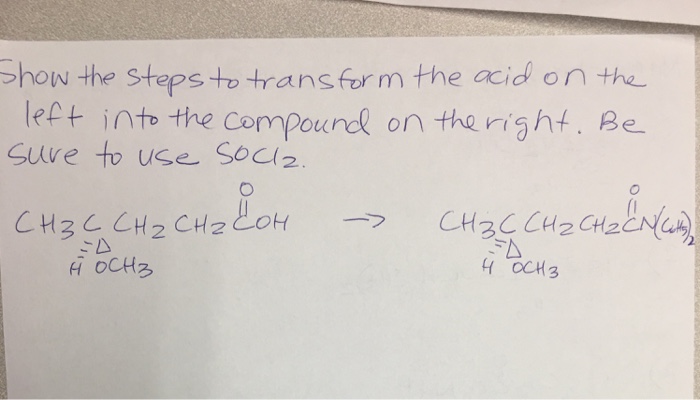 Show the steps to transform the acid on the
left into the compound on the right. Be
sure to use SOCl2.
O O
CH3C CH2 CH2 COH → CH3C CH2CH2CN(C2H5)2
H OCH3 H OCH3